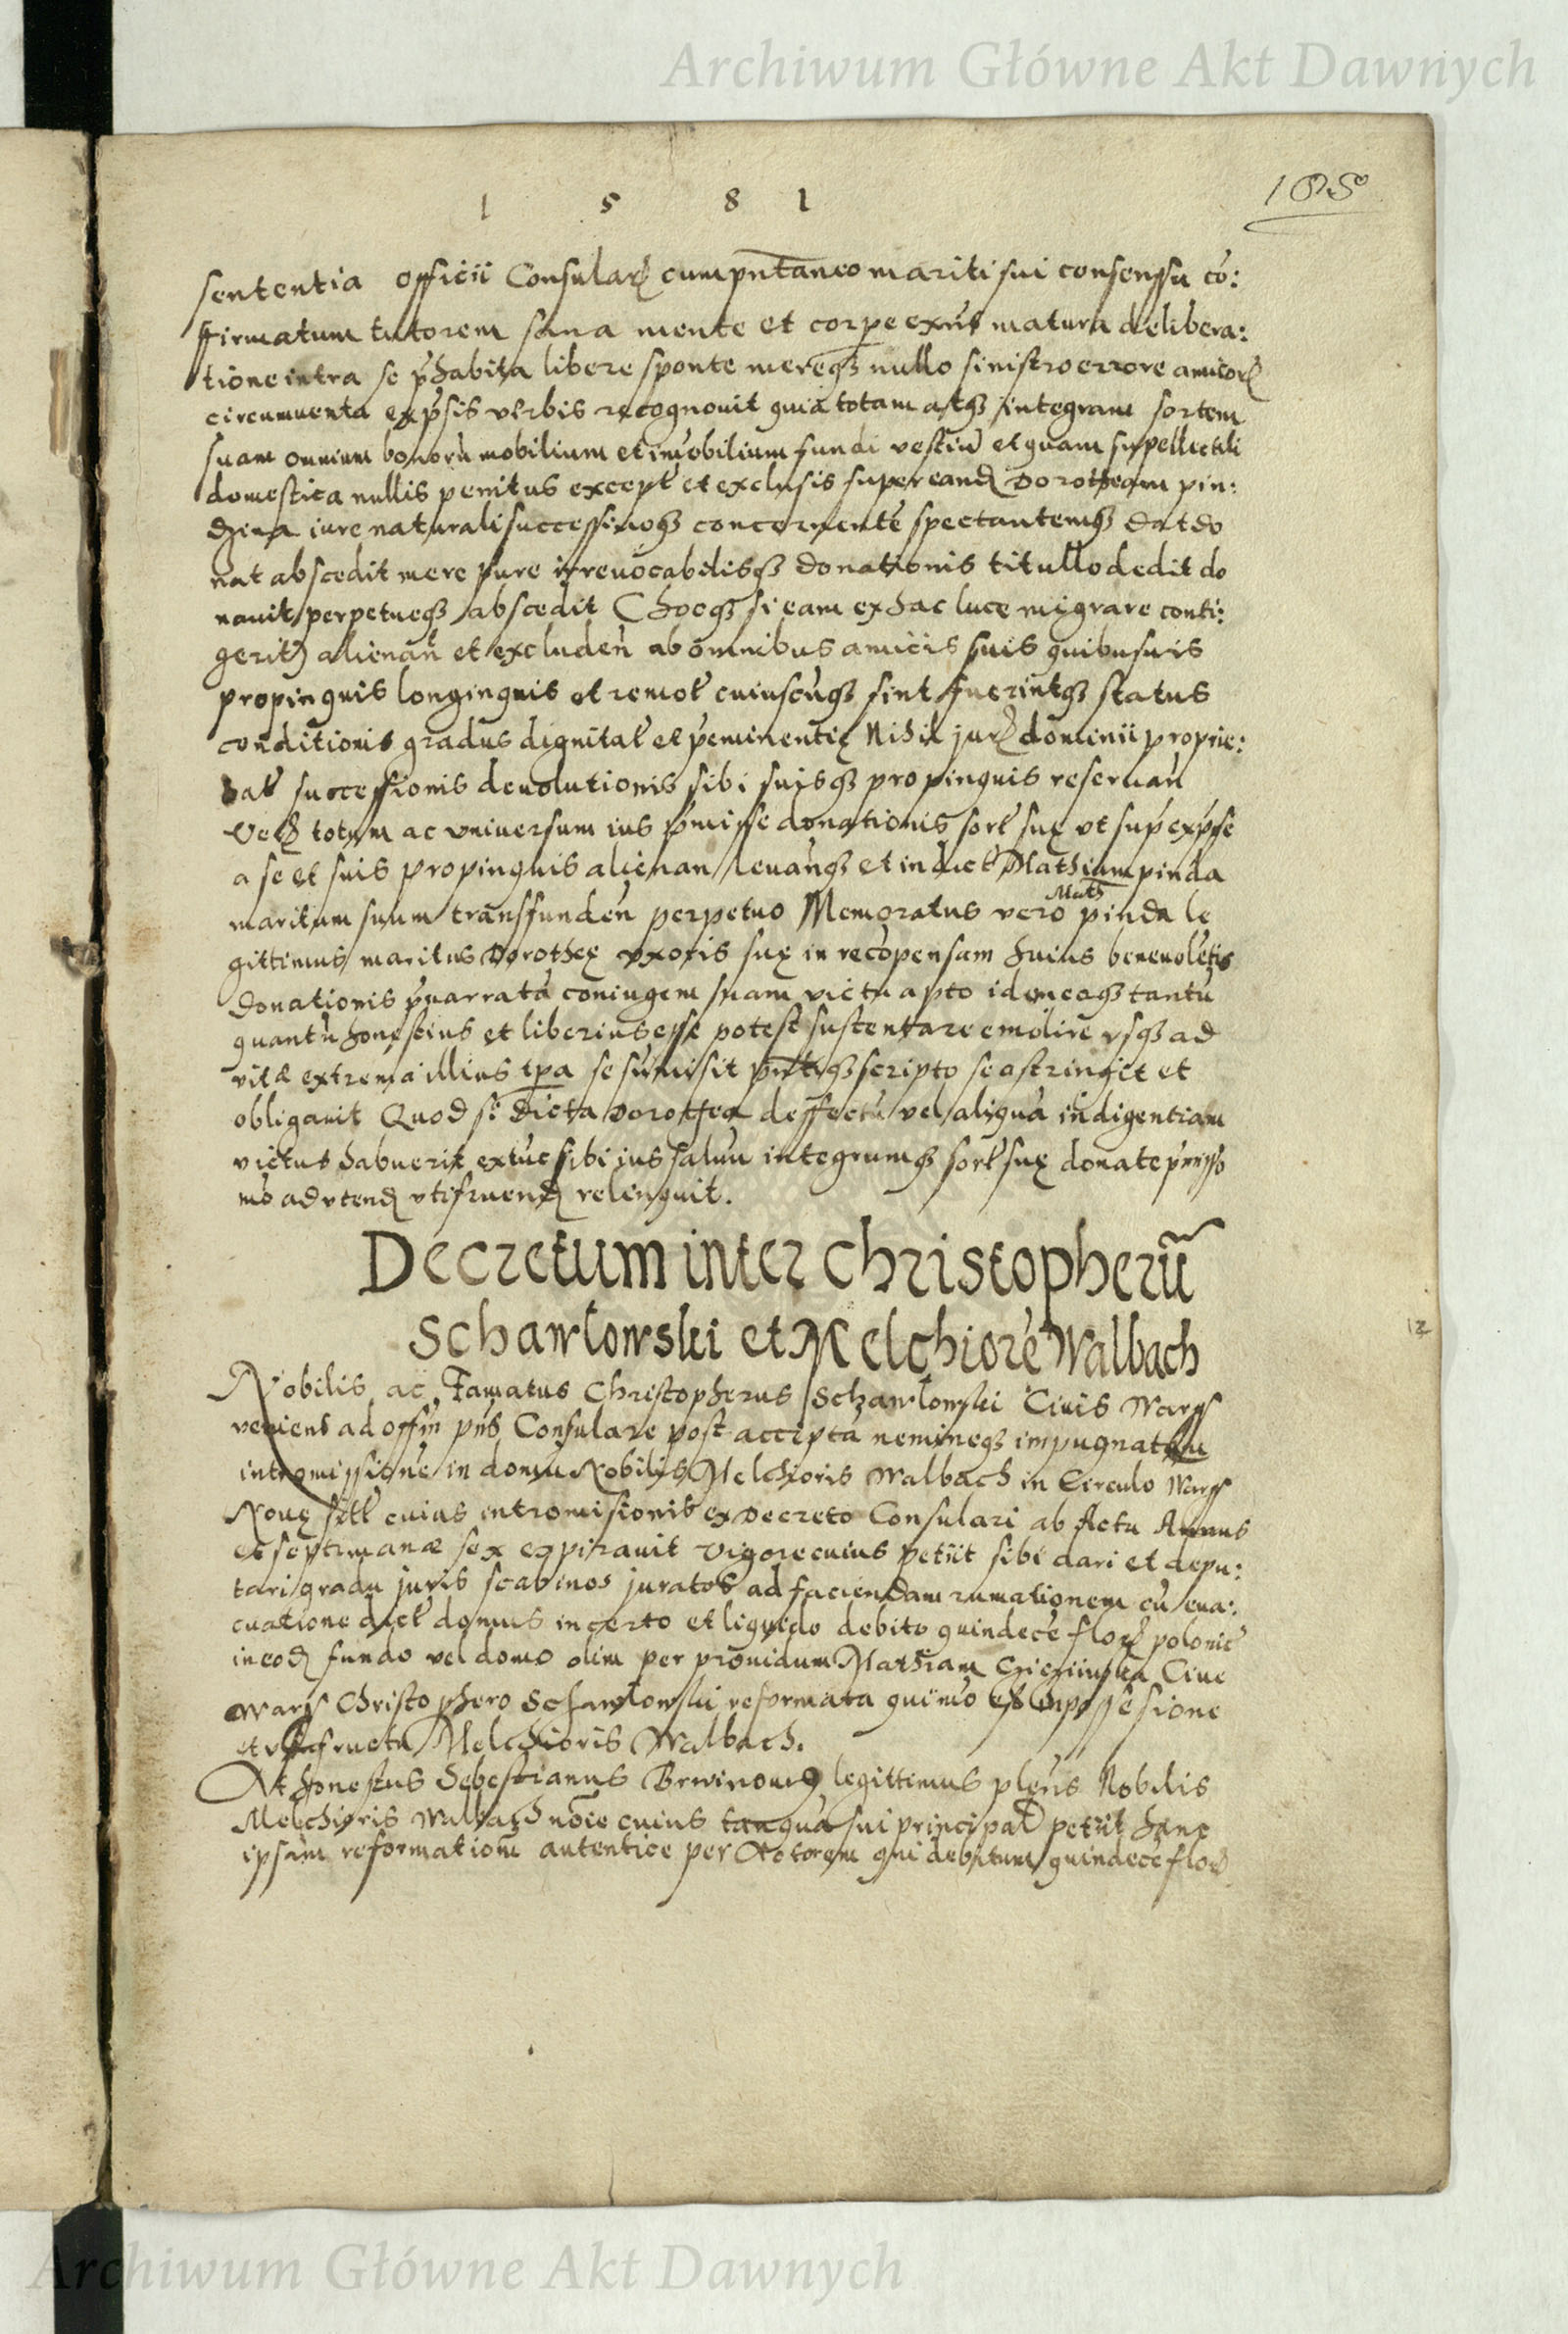 Archiwum Główne Akt Dawnych
1 5 8 1
185
sententia officii Consularꝭ cum pn̄taneo mariti sui consenssu cō:
ffirmatum tutorem sana mente et corpe exn̄s matura delibera:
tione intra se p̄habita libere sponte mereqꝫ nullo sinistro errore amicorꝭ
circumuenta exp̄sis verbis recognouit quia totam atqꝫ integram sortem
suam omnium bonorū mobilium et im̄obilium fundi vestiū et quam suppellectili
domestica nullis penitus except̄ et exclusis super eandꝭ Dorotheam pin:
dzina iure naturali successiuoqꝫ concernente spectantemqꝫ dat do
nat abscedit mere pure irreuocabilisqꝫ donationis titullo dedit do
nauit perpetueqꝫ abscedit Choeqꝫ si eam ex hac luce migrare conti:
gerit) alienan̄ et excluden̄ ab omnibus amicis suis quibusuis
propinquis longinquis et remot̄ cuiuscūqꝫ sint fuerintqꝫ status
conditionis gradus dignitat̄ et p̄eminentię Nihil jurꝭ dominii proprie:
tat̄ successionis deuolutionis sibi suisqꝫ propinquis reseruan̄
Verꝭ totum ac vniuersum ius p̄misse donationis sort̄ suę vt sup̄ exp̄sse
a se et suis propinquis alienan leuan̄qꝫ et in dict̄ Mathiam pinda
maritum suum transfunden̄ perpetuo Memoratus vero Math pinda le
gittimus maritus Dorotheę vxoris suę in recōpensam huius beneuolētis
donationis p̄narratā coniugem suam victu apto idoneoqꝫ tantū
quantū honestius et liberius esse potest sustentare emolire vsqꝫ ad
vitæ extrema illius tpa se sum̄isit pn̄tiqꝫ scripto se astringit et
obligauit Quod si dicta Dorothea deffectū vel aliquā indigentiam
victus habuerit extūc sibi ius saluū integrumqꝫ sort̄ suę donate
ad vtendꝭ vtifruendꝭ relinquit.
Decretum inter Christopherū
Schawlowski et Melchiorē Walbach
Nobilis ac Famatus Christopherus Schawlowski Ciuis Warss
veniens ad offm̄ pn̄s Consulare post acceptā nemineqꝫ impugnatam
intromissionē in domū Nobilis Melchioris Walbach in Circulo Warss
Nouę sitt̄ cuius intromisionis ex Decreto Consulari ab Actu Annus
et septimanæ sex expirauit vigore cuius petiit sibi dari et depu:
tari gradu juris scabinos juratos ad faciendam rumationem cū eua:
cuatione dict̄ domus in certo et liquido debito quindecē florꝭ polonic̄
in eodꝭ fundo vel domo olim per prouidum Mathiam Ciue
Warss Christophero Schawlowski reformata quimō in possesione
et vsufructu Melchioris Walbach.
At honestus Sebestianus legittimus plen̄s Nobilis
Melchioris Walbach noīe cuius tanquā sui principał petiit hanc
ipsam reformationē autentice per Actorem qui debitum quindecē florꝭ
12
Archiwum Główne Akt Dawnych